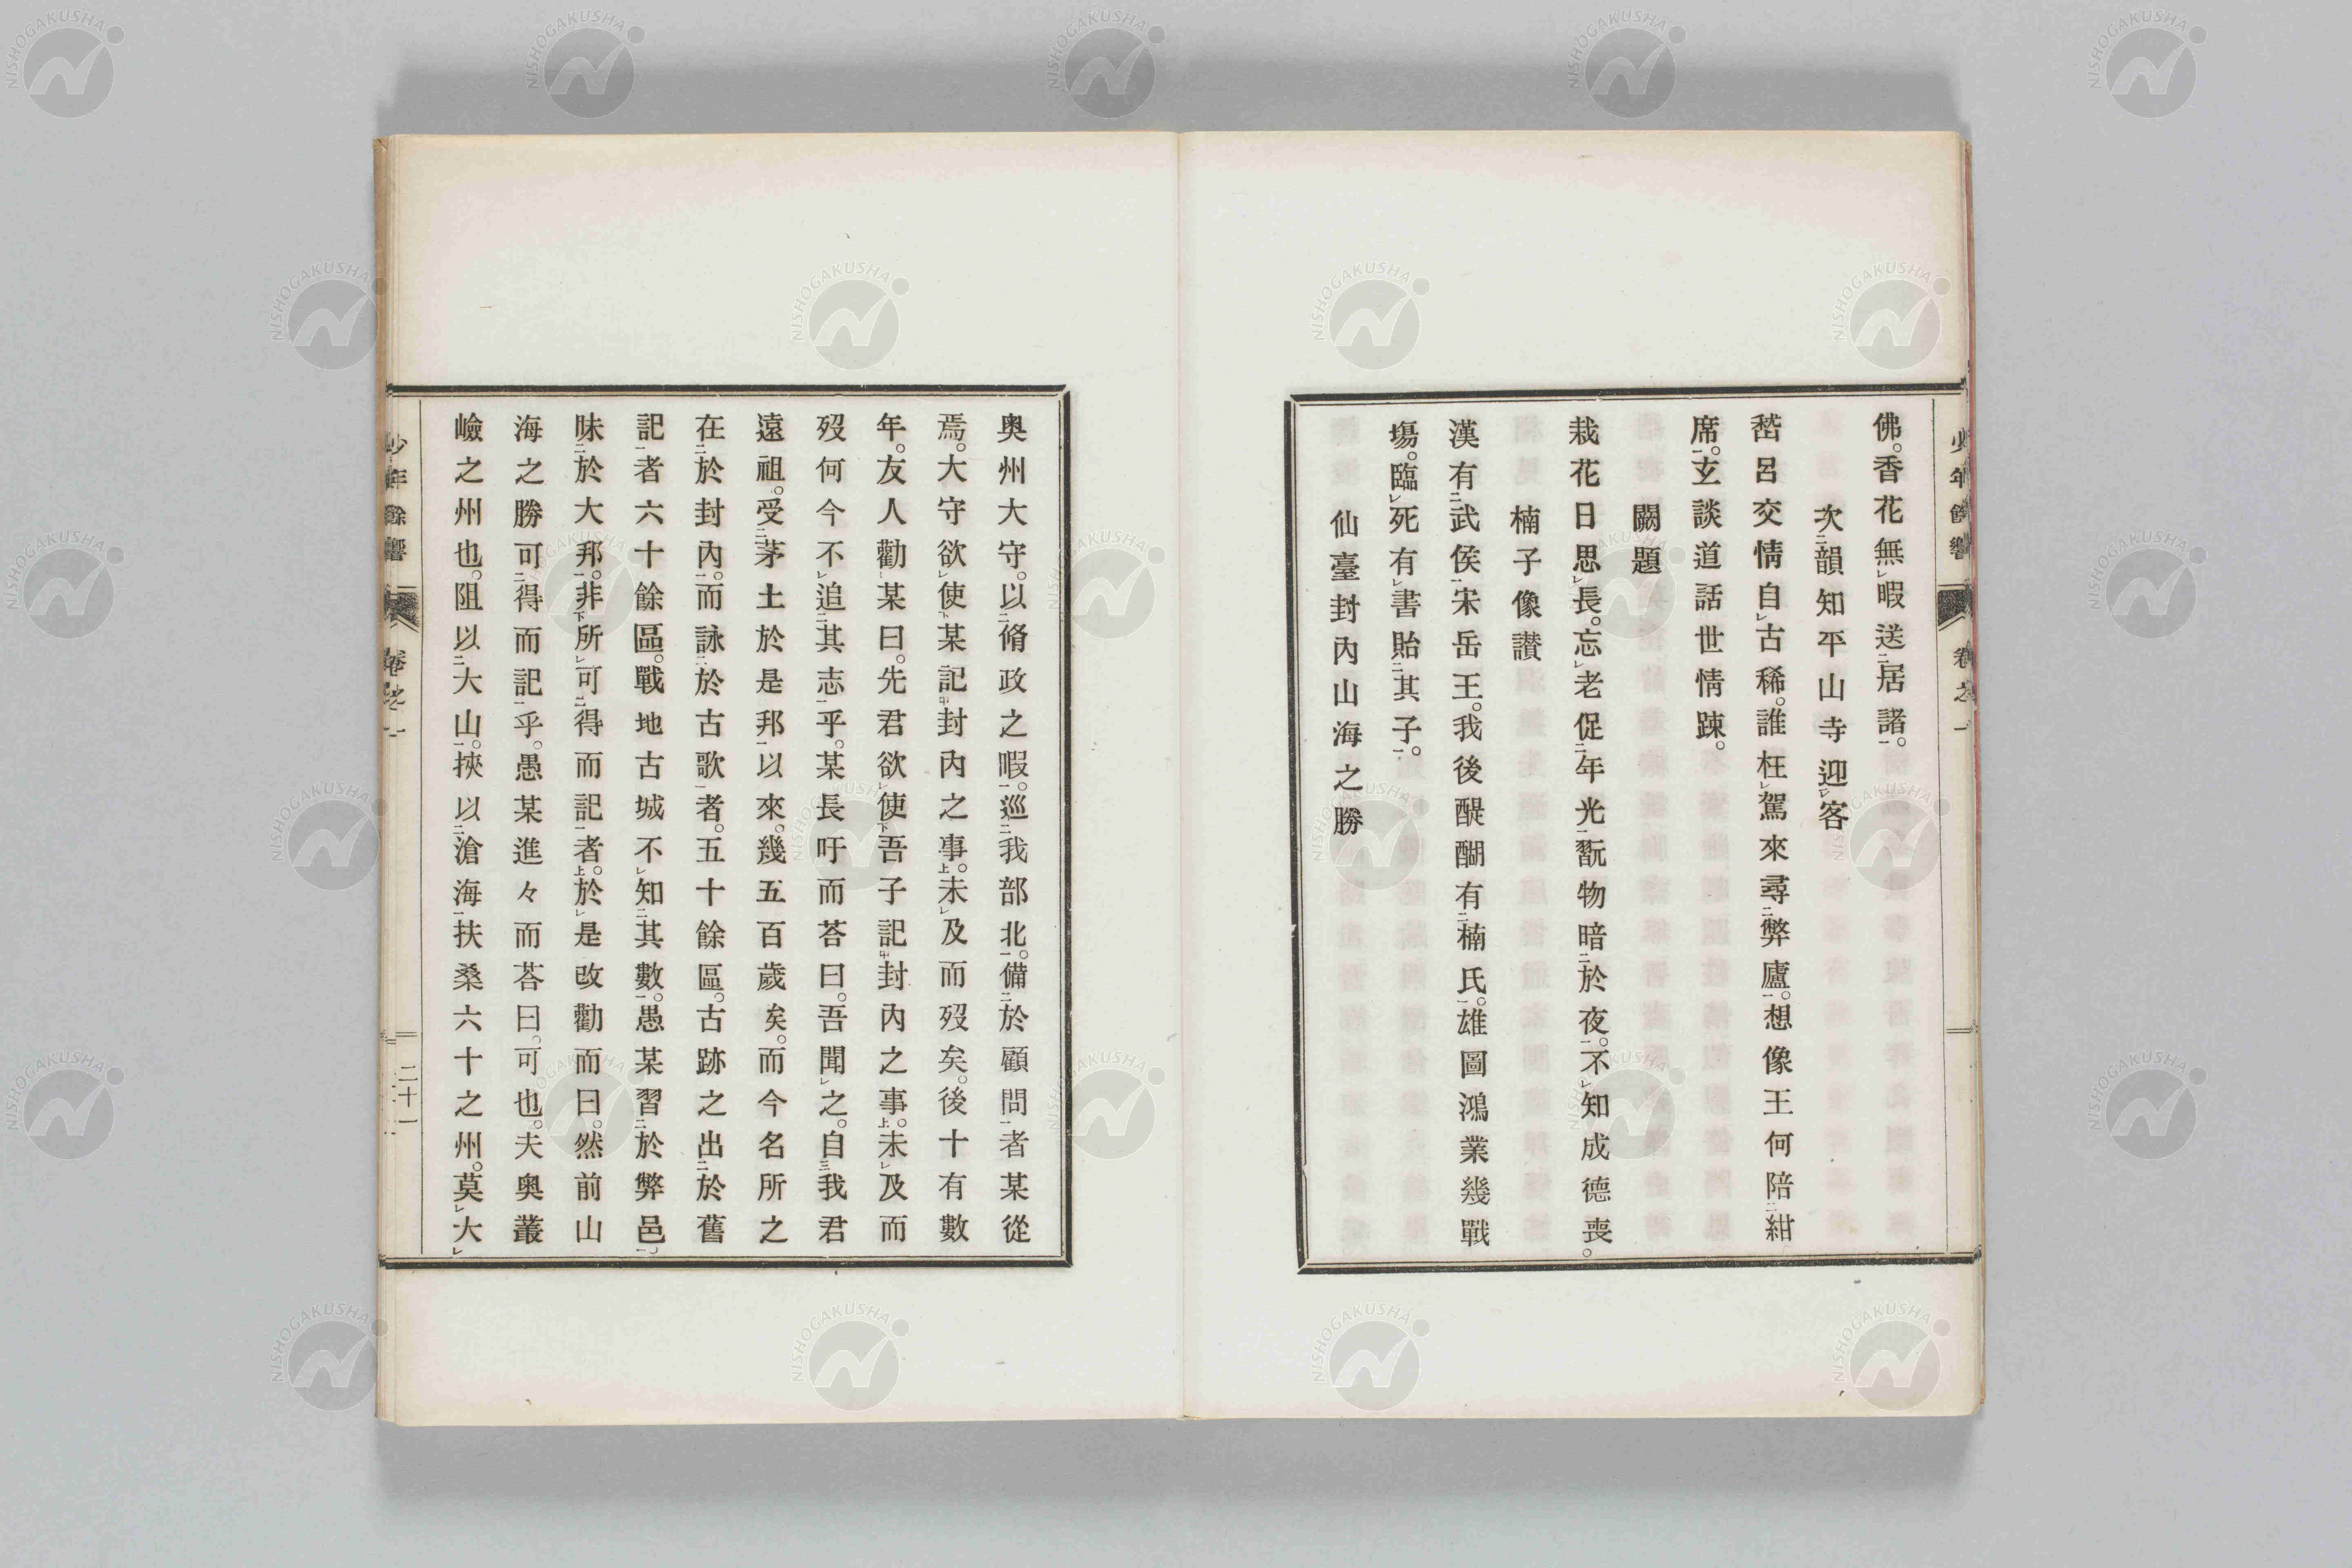 佛。香花無㆑暇送㆓居諸㆒。
次㆓韻知平山寺迎㆑客
嵆呂交情自㆑古稀。誰枉㆑駕來尋㆓弊廬㆒。想像王何陪㆓紺
席㆒。玄談道話世情踈。
闕題
栽花日思㆑長。忘㆑老促㆓年光㆒翫物暗㆓於夜㆒。不㆑知成德喪。
楠子像讃
漢有㆓武侯㆒宋岳王。我後醍醐有㆓楠氏㆒。雄圖鴻業幾戰
塲。臨㆑死有㆑書貽㆓其子㆒。
仙臺封內山海之勝
奥州大守。以㆓脩政之暇㆒。巡㆓我部北㆒。備㆓於顧問㆒者某從
焉。大守欲㆑使㆘某記㆗封內之事㆖。未㆑及而歿矣。後十有數
年。友人勸某曰。先君欲㆑使㆘吾子記㆗封內之事㆖。未㆑及而
歿何今不㆑追㆓其志㆒乎。某長吁而荅曰。吾聞㆑之。自㆔我君
遠祖。受㆓茅土於是邦㆒以來。幾五百歲矣。而今名所之
在㆓於封內㆒。而詠㆓於古歌㆒者。五十餘區。古跡之出㆓於舊
記㆒者六十餘區。戰地古城不㆑知㆓其數㆒。愚某習㆓於弊邑㆒。
昧㆓於大邦㆒。非㆘所㆑可㆓得而記㆒者㆖。於㆑是改勸而曰。然前山
海之勝可㆓得而記㆒乎。愚某進々而荅曰。可也。夫奥叢
嶮之州也。阻以㆓大山㆒。挾以㆓滄海㆒扶桑六十之州。莫㆑大㆑
少年餘響
卷之一
二十一
少年餘響
卷之一
NISHOGAKUSHA